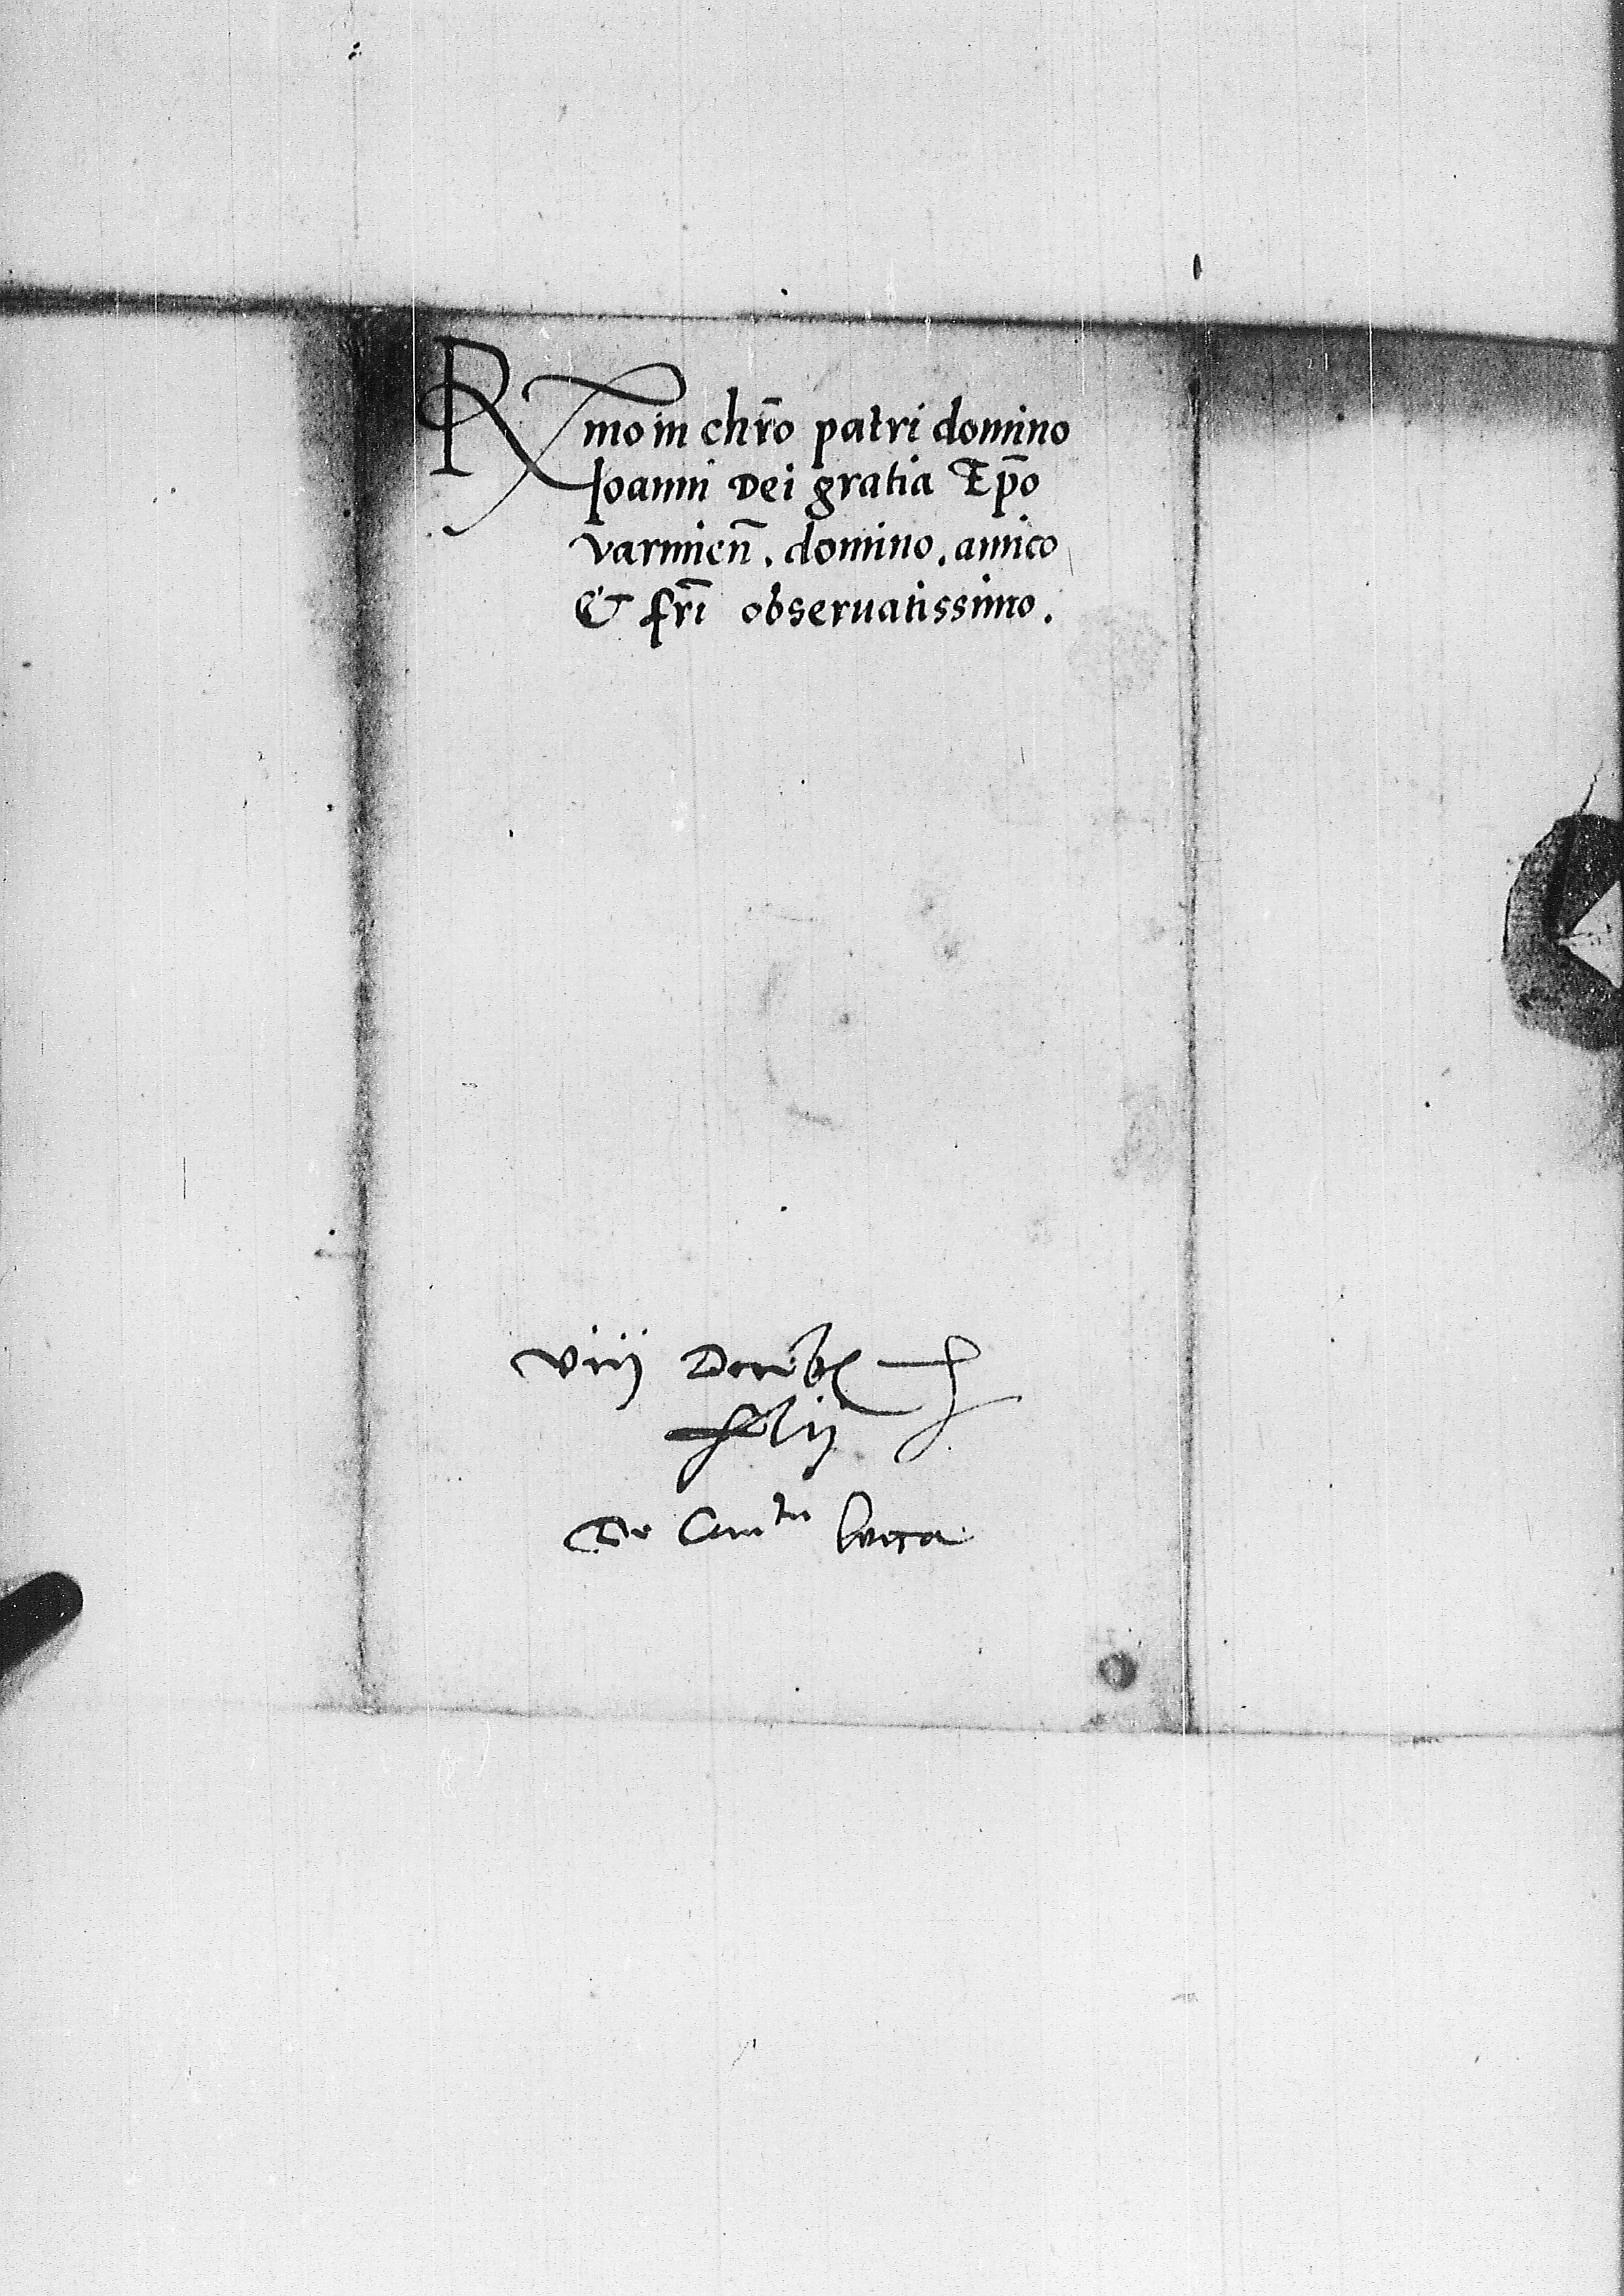 Rmo in chr̄o patri domino
Joanni Dei gratia Ep̄o
varmien̄. domino. amico
& fr̄i observatissimo.
viij Decemb
xlij
De